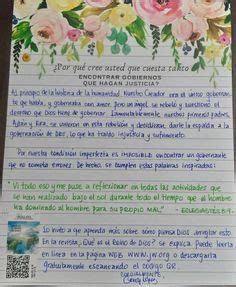 ¿Por qué cree usted que cuesta tanto
ENCONTRAR GOBIERNOS
QUE HAGAN JUSTICIA?
Al principio de la historia de la humanidad, Nuestro Creador era el único gobernan-
te que había, y gobernaba con amor. Pero un ángel se rebeló y cuestionó el
derecho que Dios tiene de gobernar. Lamentablemente, nuestros primeros padres,
Adán y Eva, se unieron en esta rebelión y decidieron darle la espalda a la
gobernación de Dios, lo que ha traído injusticia y sufrimiento.
Por nuestra condición imperfecta es IMPOSIBLE encontrar un gobernante
que no cometa errores. De hecho, se cumplen estas palabras inspiradas:
"Vi todo eso y me puse a reflexionar en todas las actividades que
se han realizado bajo el sol durante todo el tiempo que el hombre
ha dominado al hombre para su propio MAL" - ECLESIASTES 8:9
Lo invito a que aprenda más sobre cómo piensa Dios arreglar esto
En la revista ¿Qué es el Reino de Dios? se explica. Puede leerla
en línea en la página WEB www.jw.org o descargarla
gratuitamente escaneando el código QR.